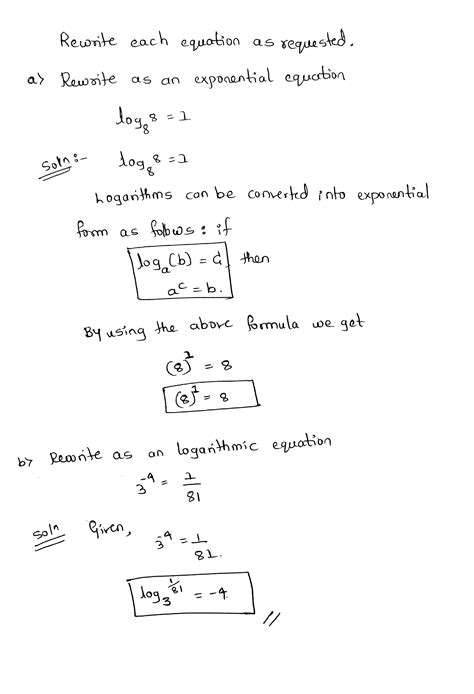 Rewrite each equation as requested.
a) Rewrite as an exponential equation
log₈8 = 1
Soln:- log₈8 = 1
Logarithms can be converted into exponential
form as follows: if
logₐ(b) = c, then
aᶜ = b.
By using the above formula we get
(8)¹ = 8
(8)¹ = 8
b) Rewrite as an logarithmic equation
3⁻⁴ = 1/81
Soln Given, 3⁻⁴ = 1/81.
log₃ 1/81 = -4 //